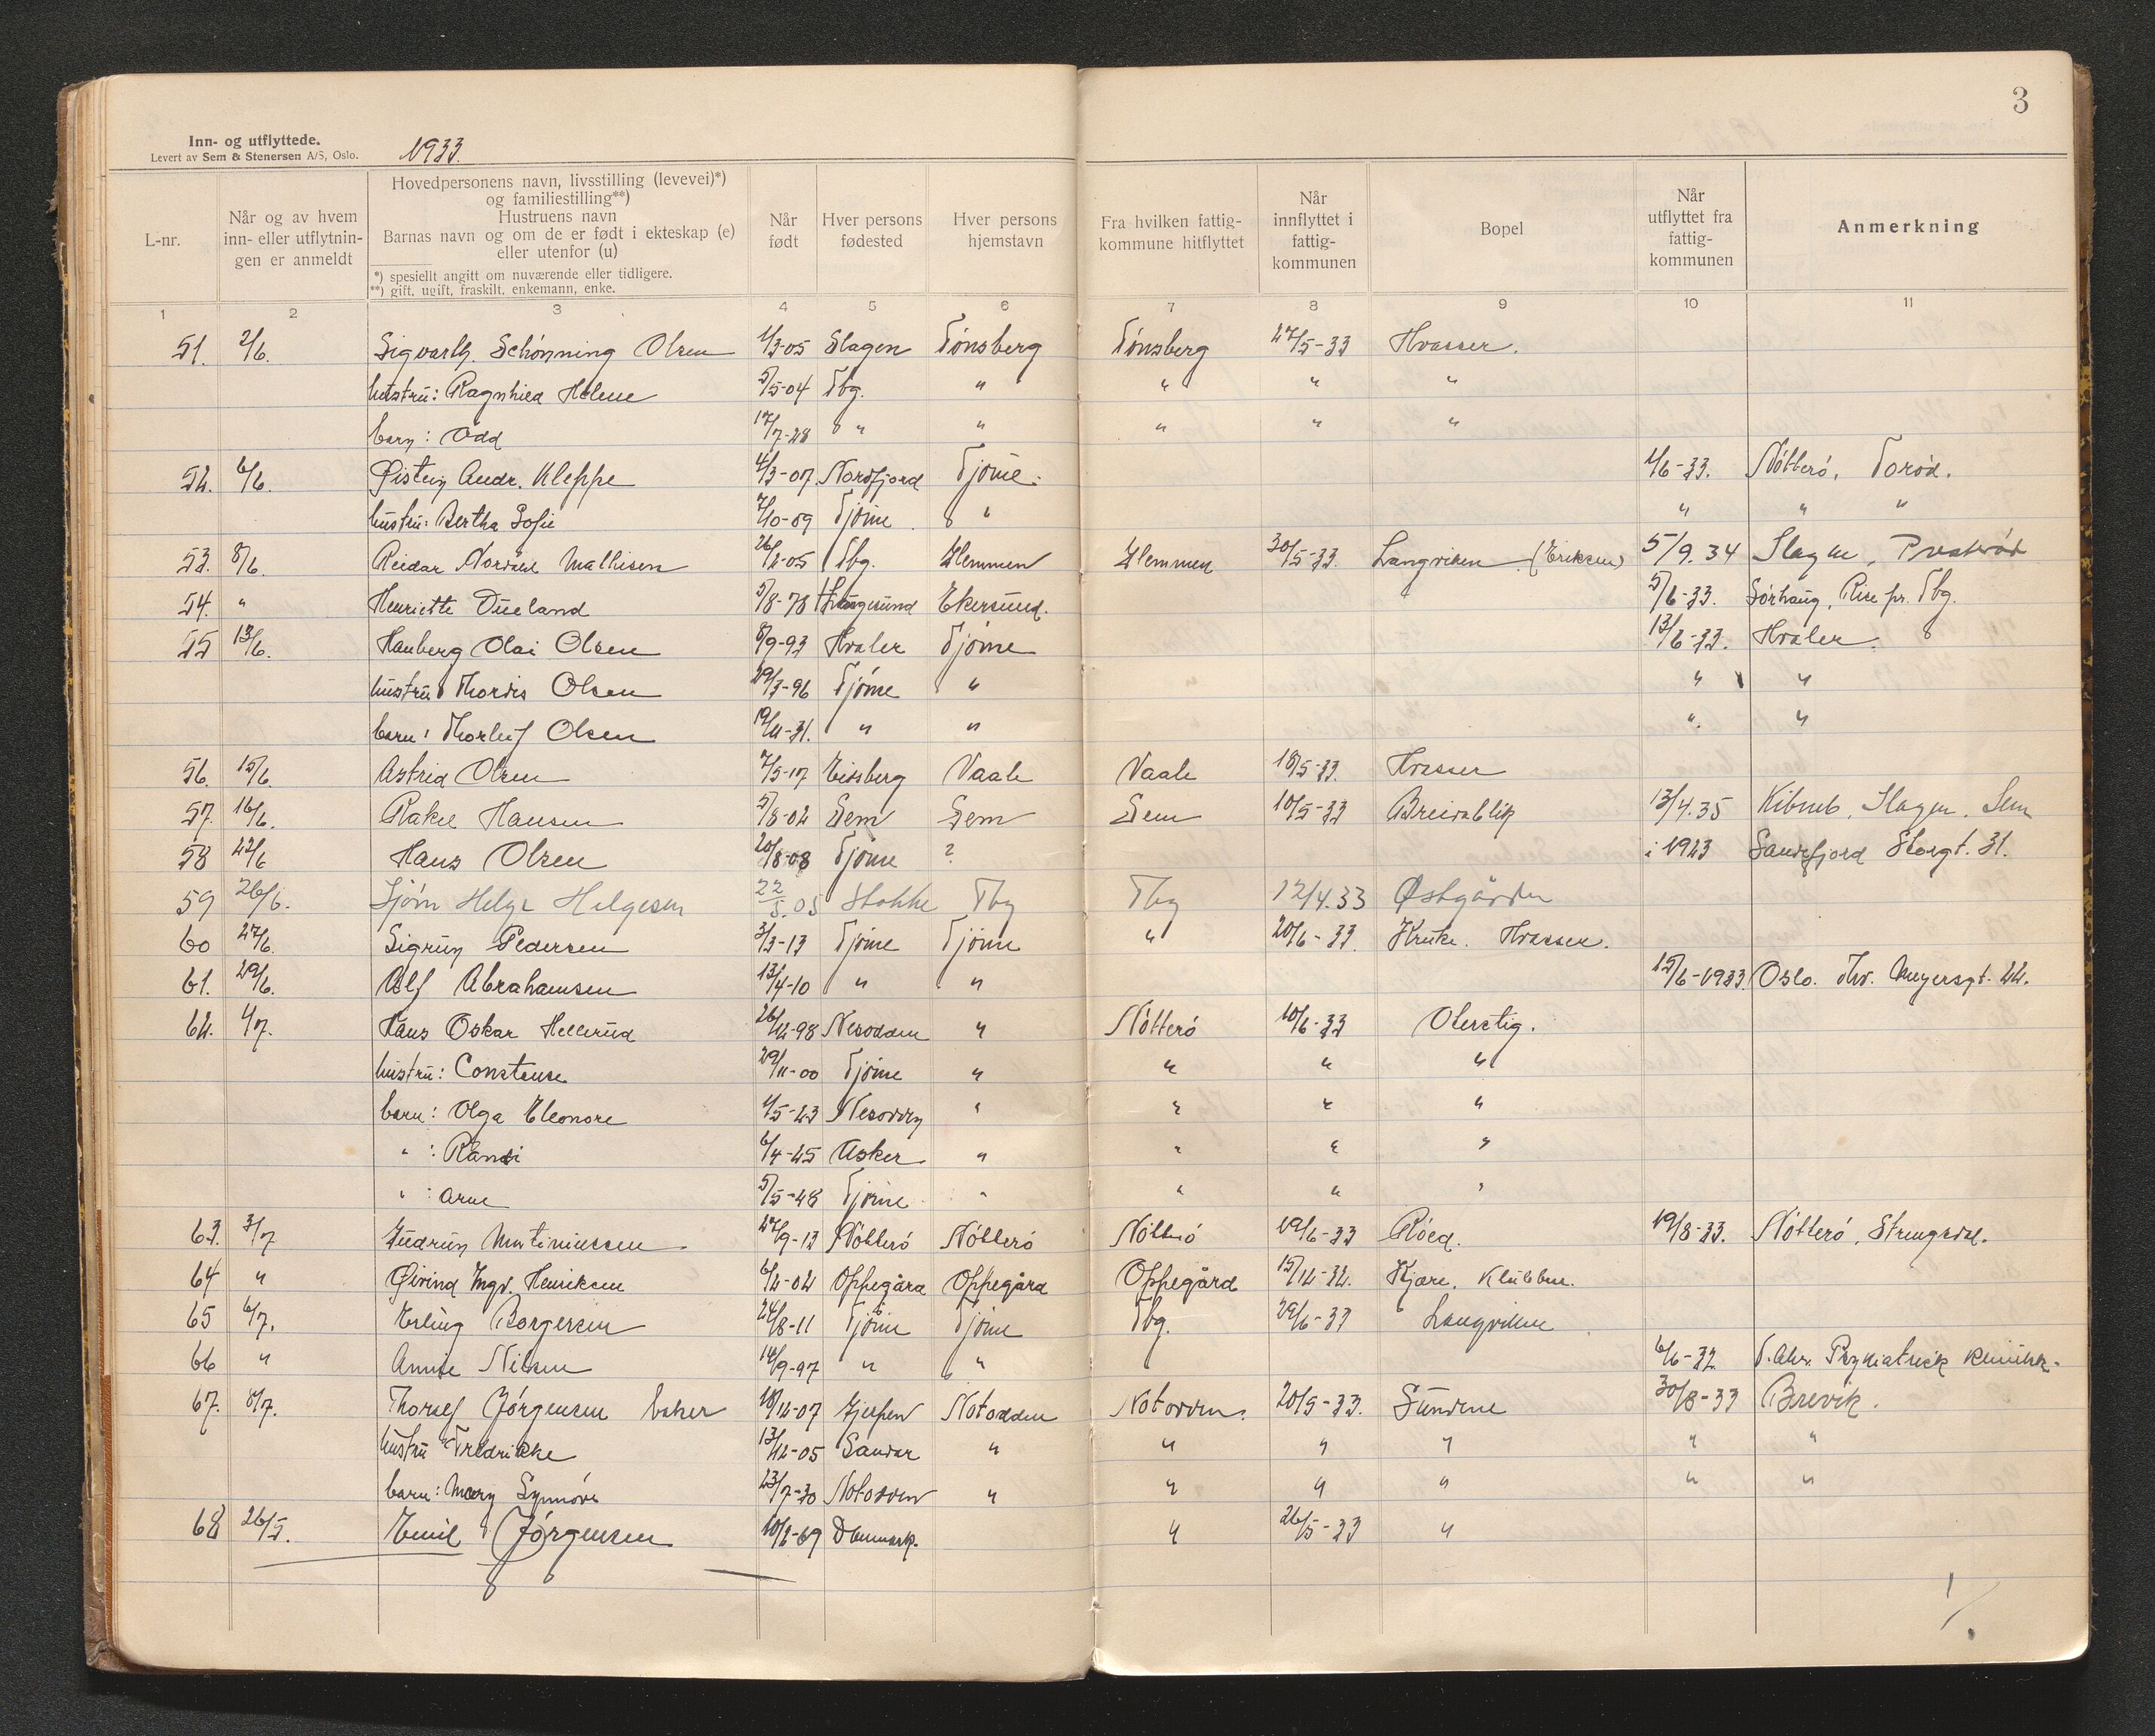 3
Inn- og utflyttede.
Levert av Sem & Stenersen A/S, Oslo.
1933.
L-nr.
Når og av hvem inn- eller utflytnin-gen er anmeldt
Hovedpersonens navn, livsstilling (levevei)*) og familiestilling**)
Hustruens navn
Barnas navn og om de er født i ekteskap (e) eller utenfor (u)
*) spesiellt angitt om nuværende eller tidligere.
**) gift, ugift, fraskilt, enkemann, enke.
Når født
Hver persons fødested
Hver persons hjemstavn
Fra hvilken fattig-kommune hitflyttet
Når innflyttet i fattig-kommunen
Bopel
Når utflyttet fra fattig-kommunen
Anmerkning
1 2 3 4 5 6 7 8 9 10 11
51. 2/6. Sigvarth Schönning Olsen 1/3-05 Slagen Tønsberg Tønsberg 27/5-33 Hvasser.
hustru: Ragnhild Helene 5/5-04 Tbg. " " " "
barn: Odd 17/7-28 " " " " "
52. 6/6. Øistein Andr. Kleppe 4/3-07. Nordfjord Tjöme. 1/6-33. Nötterö, Torød.
hustru: Bertha Sofie 7/10-09 Tjöme " " " "
53. 8/6. Reidar Nordahl Mathisen 26/2-05 Tbg. Glemmen Glemmen 30/5-33. Langviken (Eriksen) 5/9.34 Slagen, Presterød
54. " Henriette Dueland 5/8-78 Haugesund Ekersund. 5/6-33. Sørhaug, Rise pr. Tbg.
55 13/6. Hanberg Olai Olsen 8/9-93 Hvaler Tjöme 13/6-33. Hvaler.
hustru Thordis Olsen 29/3-96 Tjöme " " "
barn: Thorleif Olsen 19/11-31. " " " "
56. 15/6. Astrid Olsen 7/5-17 Eidsberg Vaale Vaale 18/5-33. Hvasser
57. 16/6. Rakel Hansen 5/8-02 Sem Sem Sem 10/5-33 Breidablik 13/4.35 Slagen. Sem
58 22/6 Hans Olsen 20/8-08 Tjöme ? i 1923 Sandefjord Storgt. 31.
59 26/6. Helge Helgesen 22/5.05 Stokke Tbg Tbg 12/4.33 Østgården
60 27/6. Sigrun Pedersen 3/3-13 Tjöme Tjöme " 20/6-33. Kruke. Hvasser.
61. 29/6. Alf Abrahamsen 13/4-10 " " 15/6-1933. Oslo. Thv. Meyersgt. 22.
62. 4/7. Hans Oskar Hellerud 26/12-98 Nesodden " Nötterö 10/6-33 Oterstig.
hustru: Constanse 29/11-00 Tjöme " " " "
barn: Olga Eleonore 4/5-23 Nesodden " " " "
" : Randi 6/4-25 Asker " " " "
" : Arne 5/5-28 Tjöme " " " "
63. 3/7 Gudrun Martiniussen 27/9-13 Nötterö Nötterö Nötterö 19/6-33 Röed. 19/8-33. Nötterö, Strengsdal.
64 " Øivind Ingv. Henriksen 6/2-02 Oppegård Oppegård Oppegård 15/12-32. Kjære. Klubben.
65 6/7. Erling Borgersen 24/8-11 Tjöme Tjöme Tbg. 29/6-33 Langviken
66 " Annie Nilsen 14/9-97 " " 6/6-32 Psykiatrisk klinikk.
67. 8/7. Thorleif Jörgensen baker 18/12-07 Gjerpen Notodden Notodden. 20/5-33. Sundene 30/8-33 Brevik.
hustru Fredrikke 13/12-05 Sandar " " " " " "
barn: Mary Synnöve 23/7-30 Notodden " " " " " "
68 26/5. Emil Jörgensen 10/2-69 Danmark. " 26/5-33 "